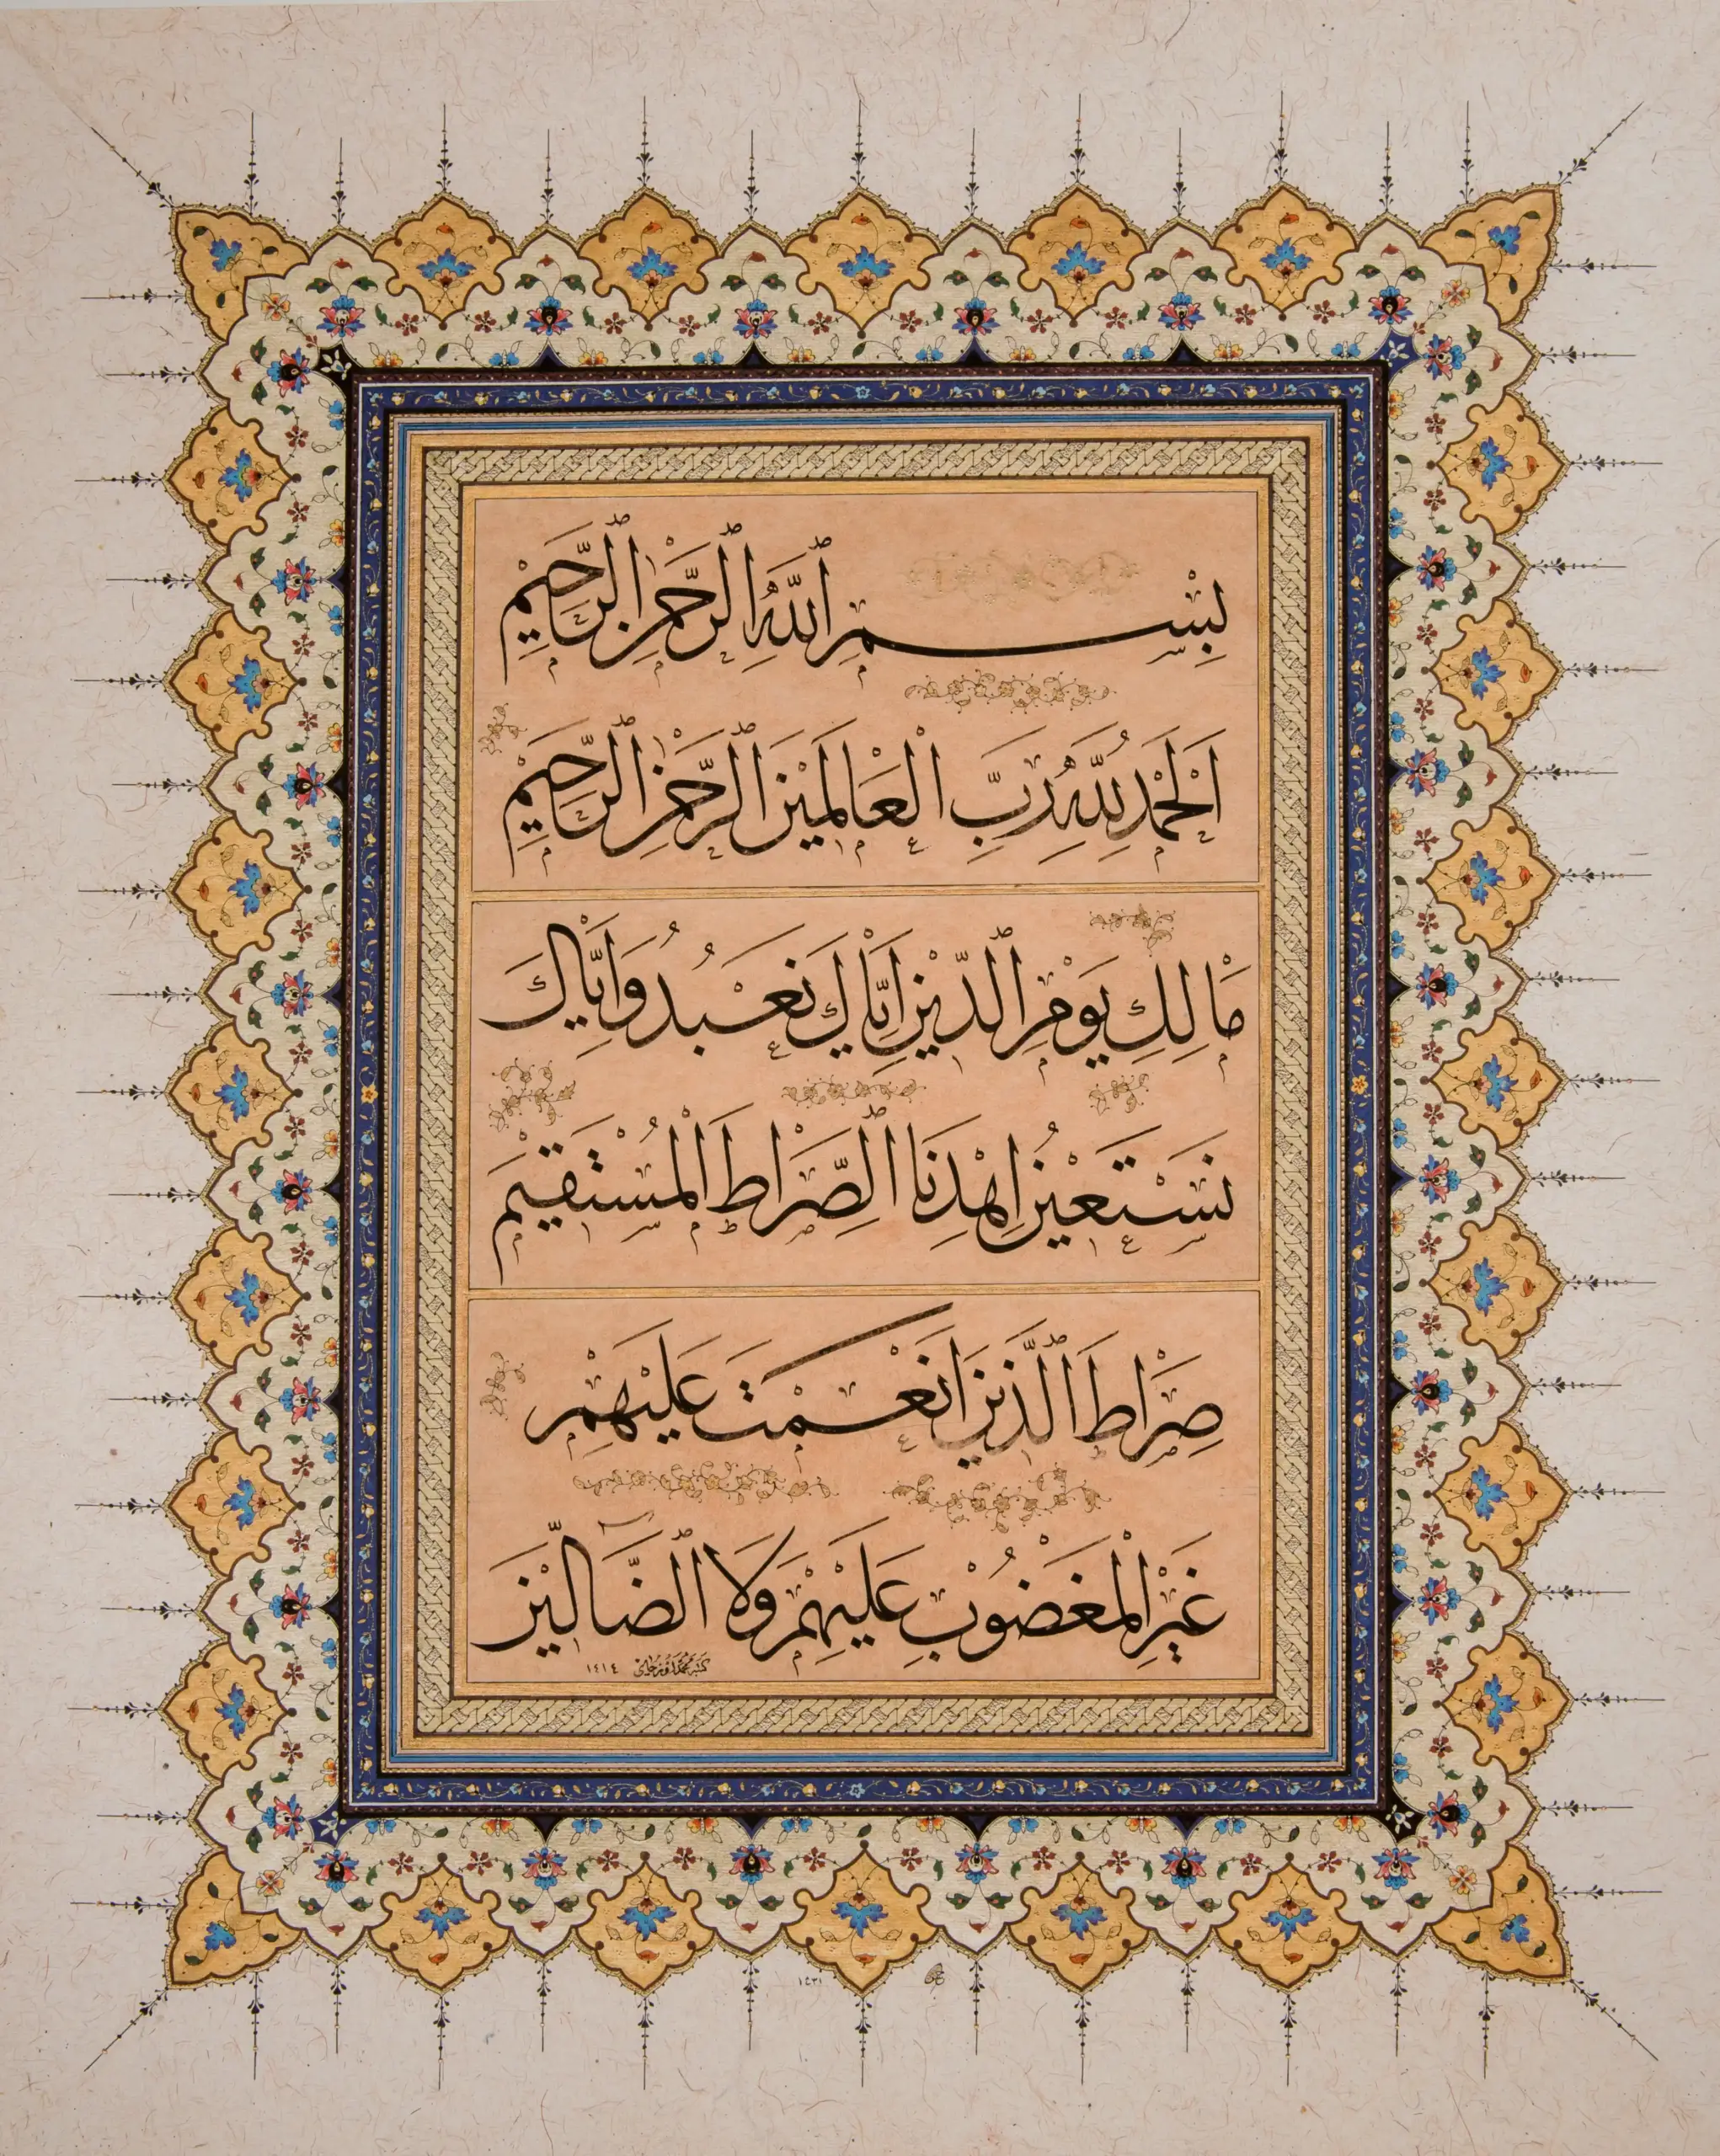 بِسْمِ ٱللَّهِ ٱلرَّحْمٰنِ ٱلرَّحِيْمِ
اَلْحَمْدُ لِلَّهِ رَبِّ الْعَالَمِيْنَ ٱلرَّحْمٰنِ ٱلرَّحِيْمِ
مَالِكِ يَوْمِ ٱلدِّيْنِ اِيَّاكَ نَعْبُدُ وَاِيَّاكَ
نَسْتَعِيْنُ اِهْدِنَا ٱلصِّرَاطَ الْمُسْتَقِيْمَ
صِرَاطَ ٱلَّذِيْنَ اَنْعَمْتَ عَلَيْهِمْ
غَيْرِ الْمَغْضُوْبِ عَلَيْهِمْ وَلَا ٱلضَّآلِّيْنَ
كتبه محمد ١٤١٤
١٤٣١